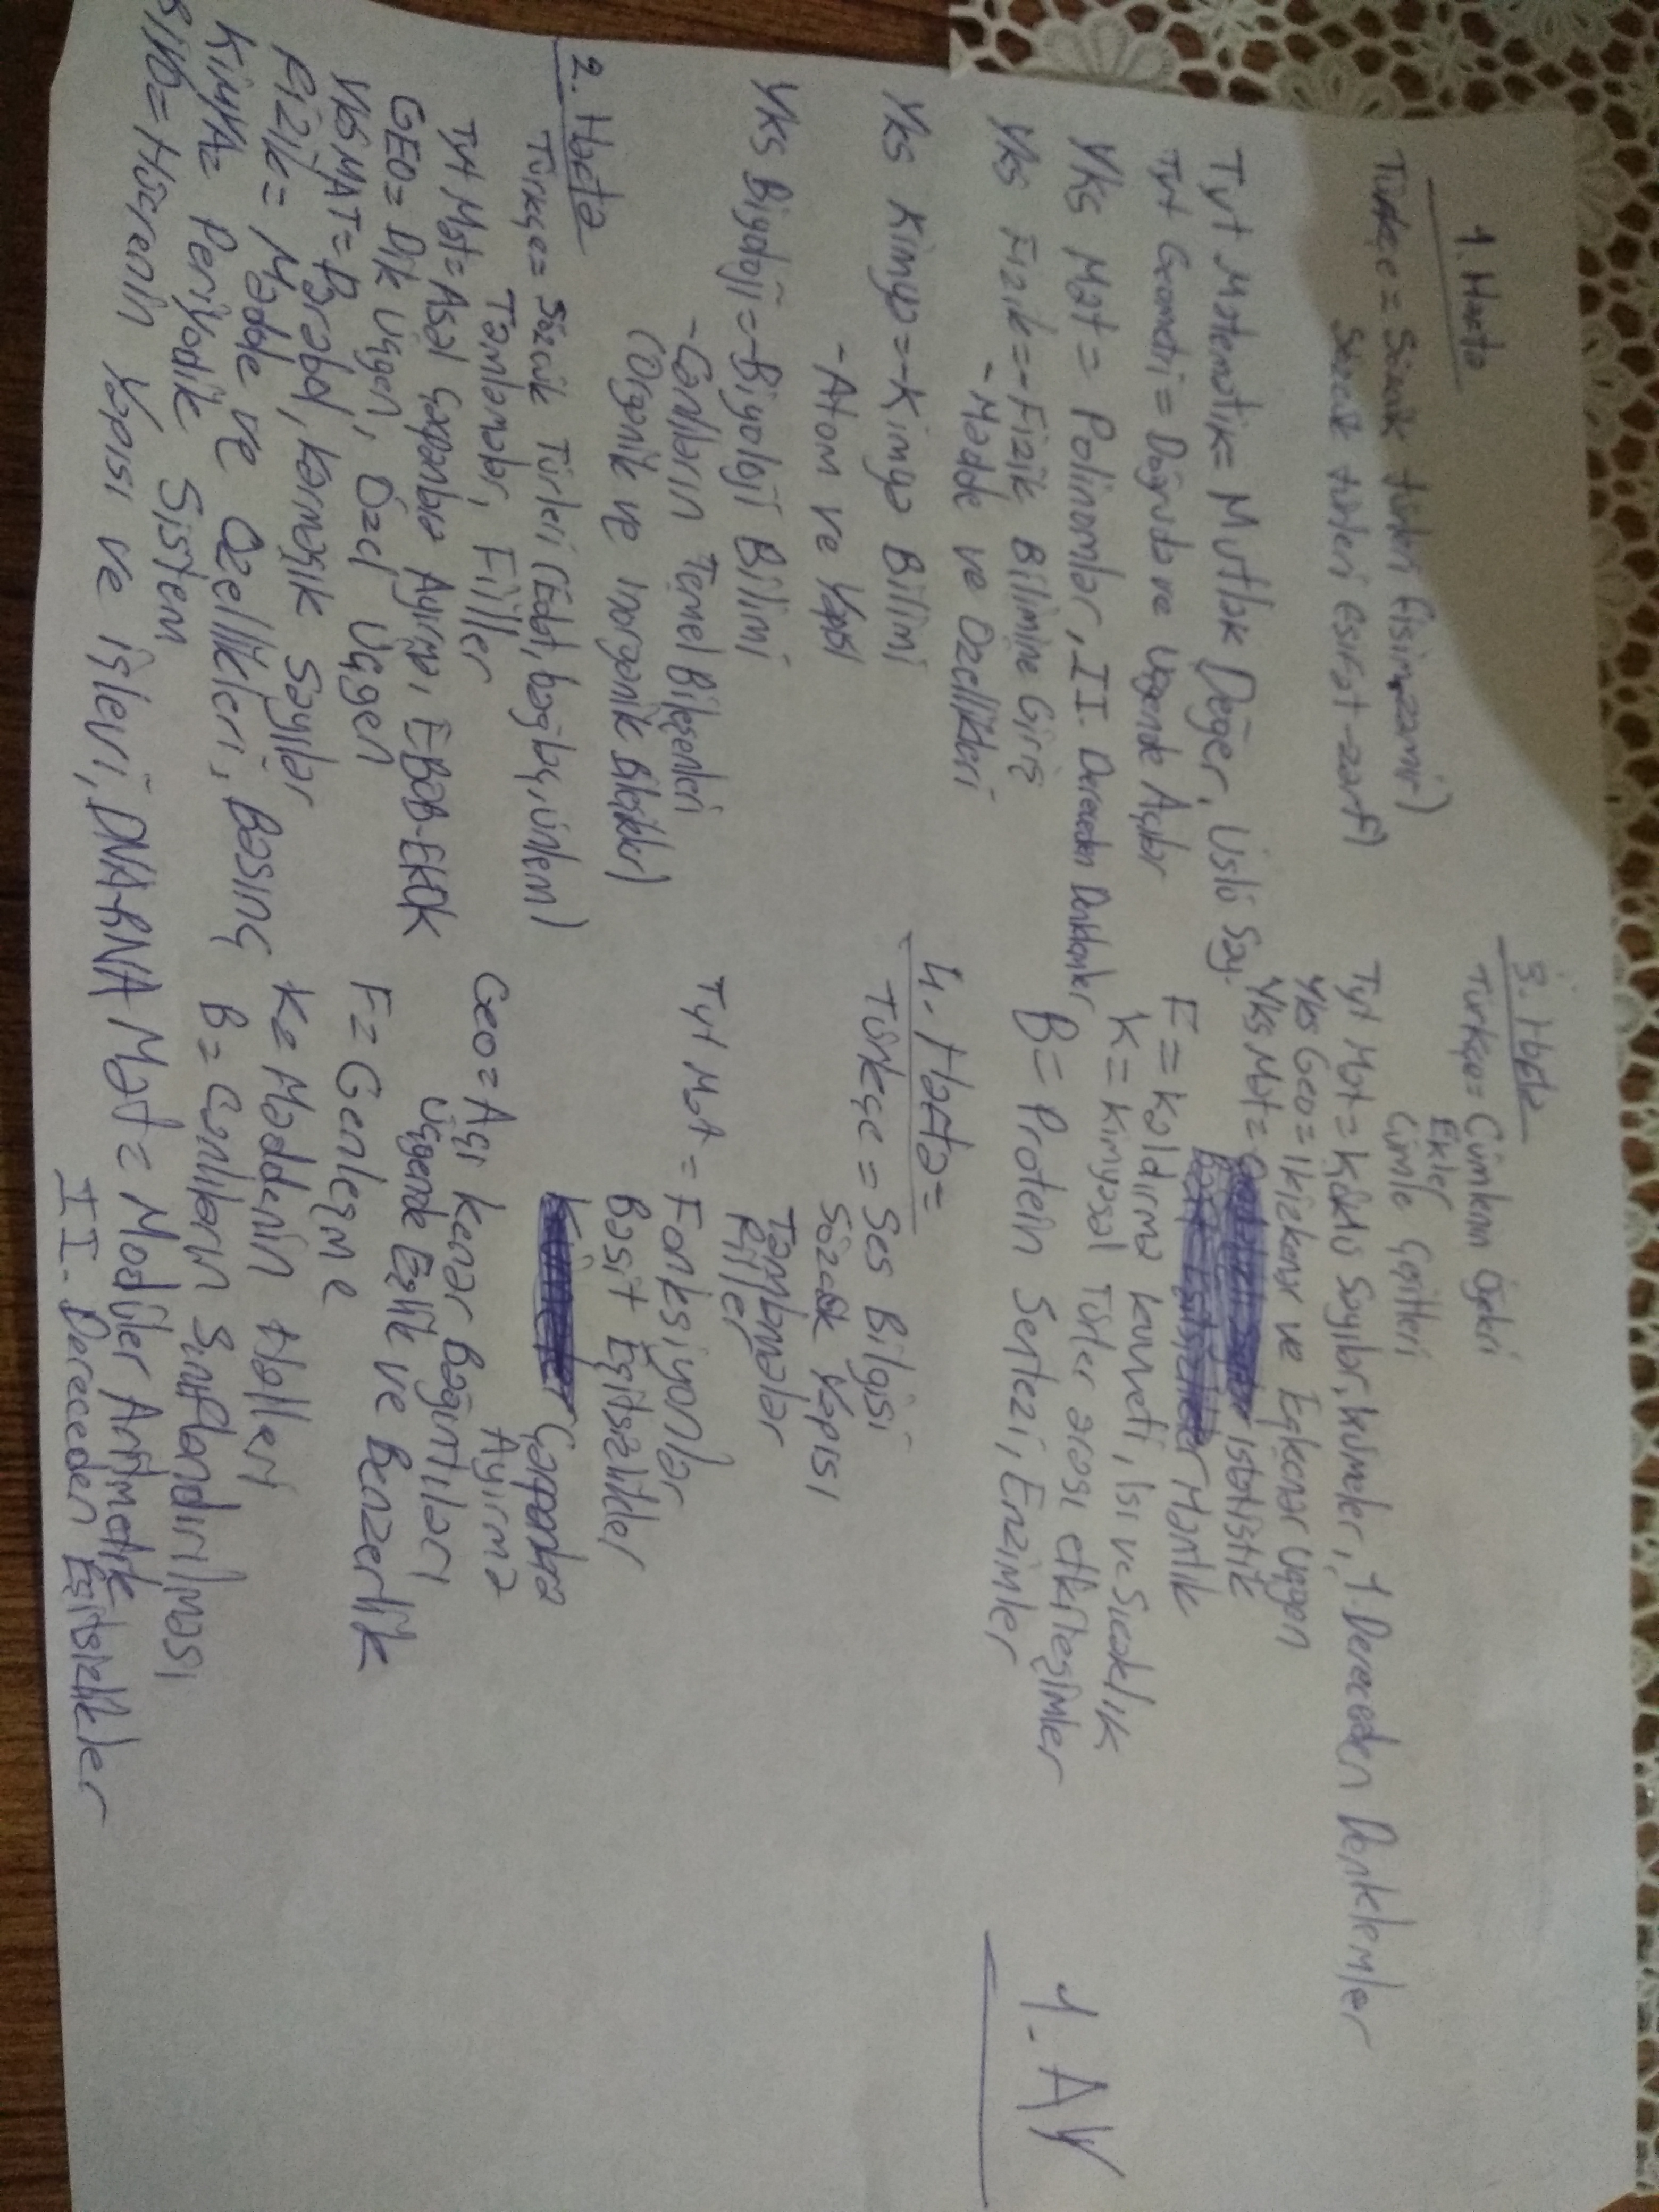 1. Hafta
Türkçe = Sözcük türleri (isim, zamir)
Sözcük türleri (sıfat-zarf)
Tyt Matematik = Mutlak Değer, Üslü Say.
Tyt Geometri = Doğruda ve Üçgende Açılar
Yks Mat = Polinomlar, II. Dereceden Denklemler
Yks Fizik = -Fizik Bilimine Giriş
-Madde ve Özellikleri
Yks Kimya = -Kimya Bilimi
-Atom ve Yapısı
Yks Biyoloji = -Biyoloji Bilimi
-Canlıların Temel Bileşenleri
(Organik ve İnorganik Bileşikler)
2. Hafta
Türkçe = Sözcük Türleri (Edat, bağlaç, ünlem)
Tamlamalar, Fiiller
Tyt Mat = Asal Çarpanlara Ayırma, EBOB-EKOK
GEO = Dik üçgen, Özel üçgen
YKS MAT = Parabol, karmaşık Sayılar
Fizik = Madde ve Özellikleri, Basınç
KimYA = Periyodik Sistem
BİYO = Hücrenin Yapısı ve İşlevi, DNA-RNA
3. Hafta
Türkçe = Cümlenin Ögeleri
Ekler
Cümle Çeşitleri
Tyt Mat = Köklü Sayılar, Kümeler, 1. Dereceden Denklemler
Yks Geo = İkizkenar ve Eşkenar üçgen
Yks Mat = istatistik
Mantık
F = Kaldırma kuvveti, Isı ve Sıcaklık
K = Kimyasal Türler arası etkileşimler
B = Protein Sentezi, Enzimler
4. Hafta =
Türkçe = Ses Bilgisi
Sözcük Yapısı
Tamlamalar
Fiiller
Tyt Mat = Fonksiyonlar
Basit Eşitsizlikler
Çarpanlara
Ayırma
Geo = Açı kenar Bağıntıları
üçgende Eşlik ve Benzerlik
F = Genleşme
K = Maddenin Halleri
B = Canlıların Sınıflandırılması
Mat = Modüler Aritmetik
II. Dereceden Eşitsizlikler
1. AY